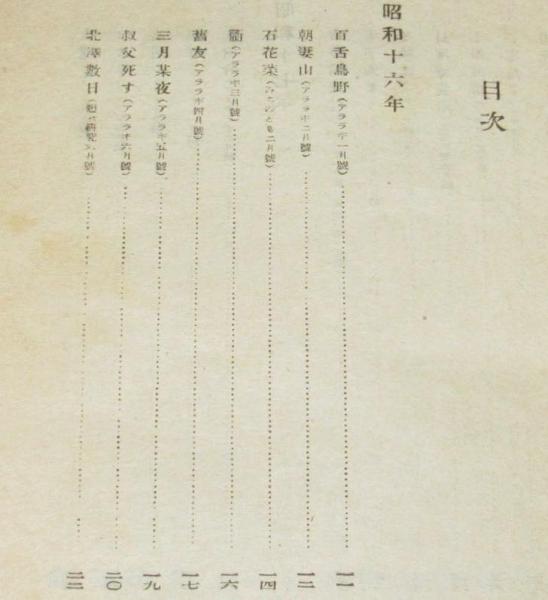 目次
昭和十六年
百舌鳥野(アララギ一月號)…………一一
朝妻山(アララギ二月號)…………一二
石花菜(みちのとも二月號)…………一四
衢(アララギ三月號)…………一六
舊友(アララギ四月號)…………一七
三月某夜(アララギ五月號)…………一九
叔父死す(アララギ六月號)…………二〇
北澤數日(月號)…………二二